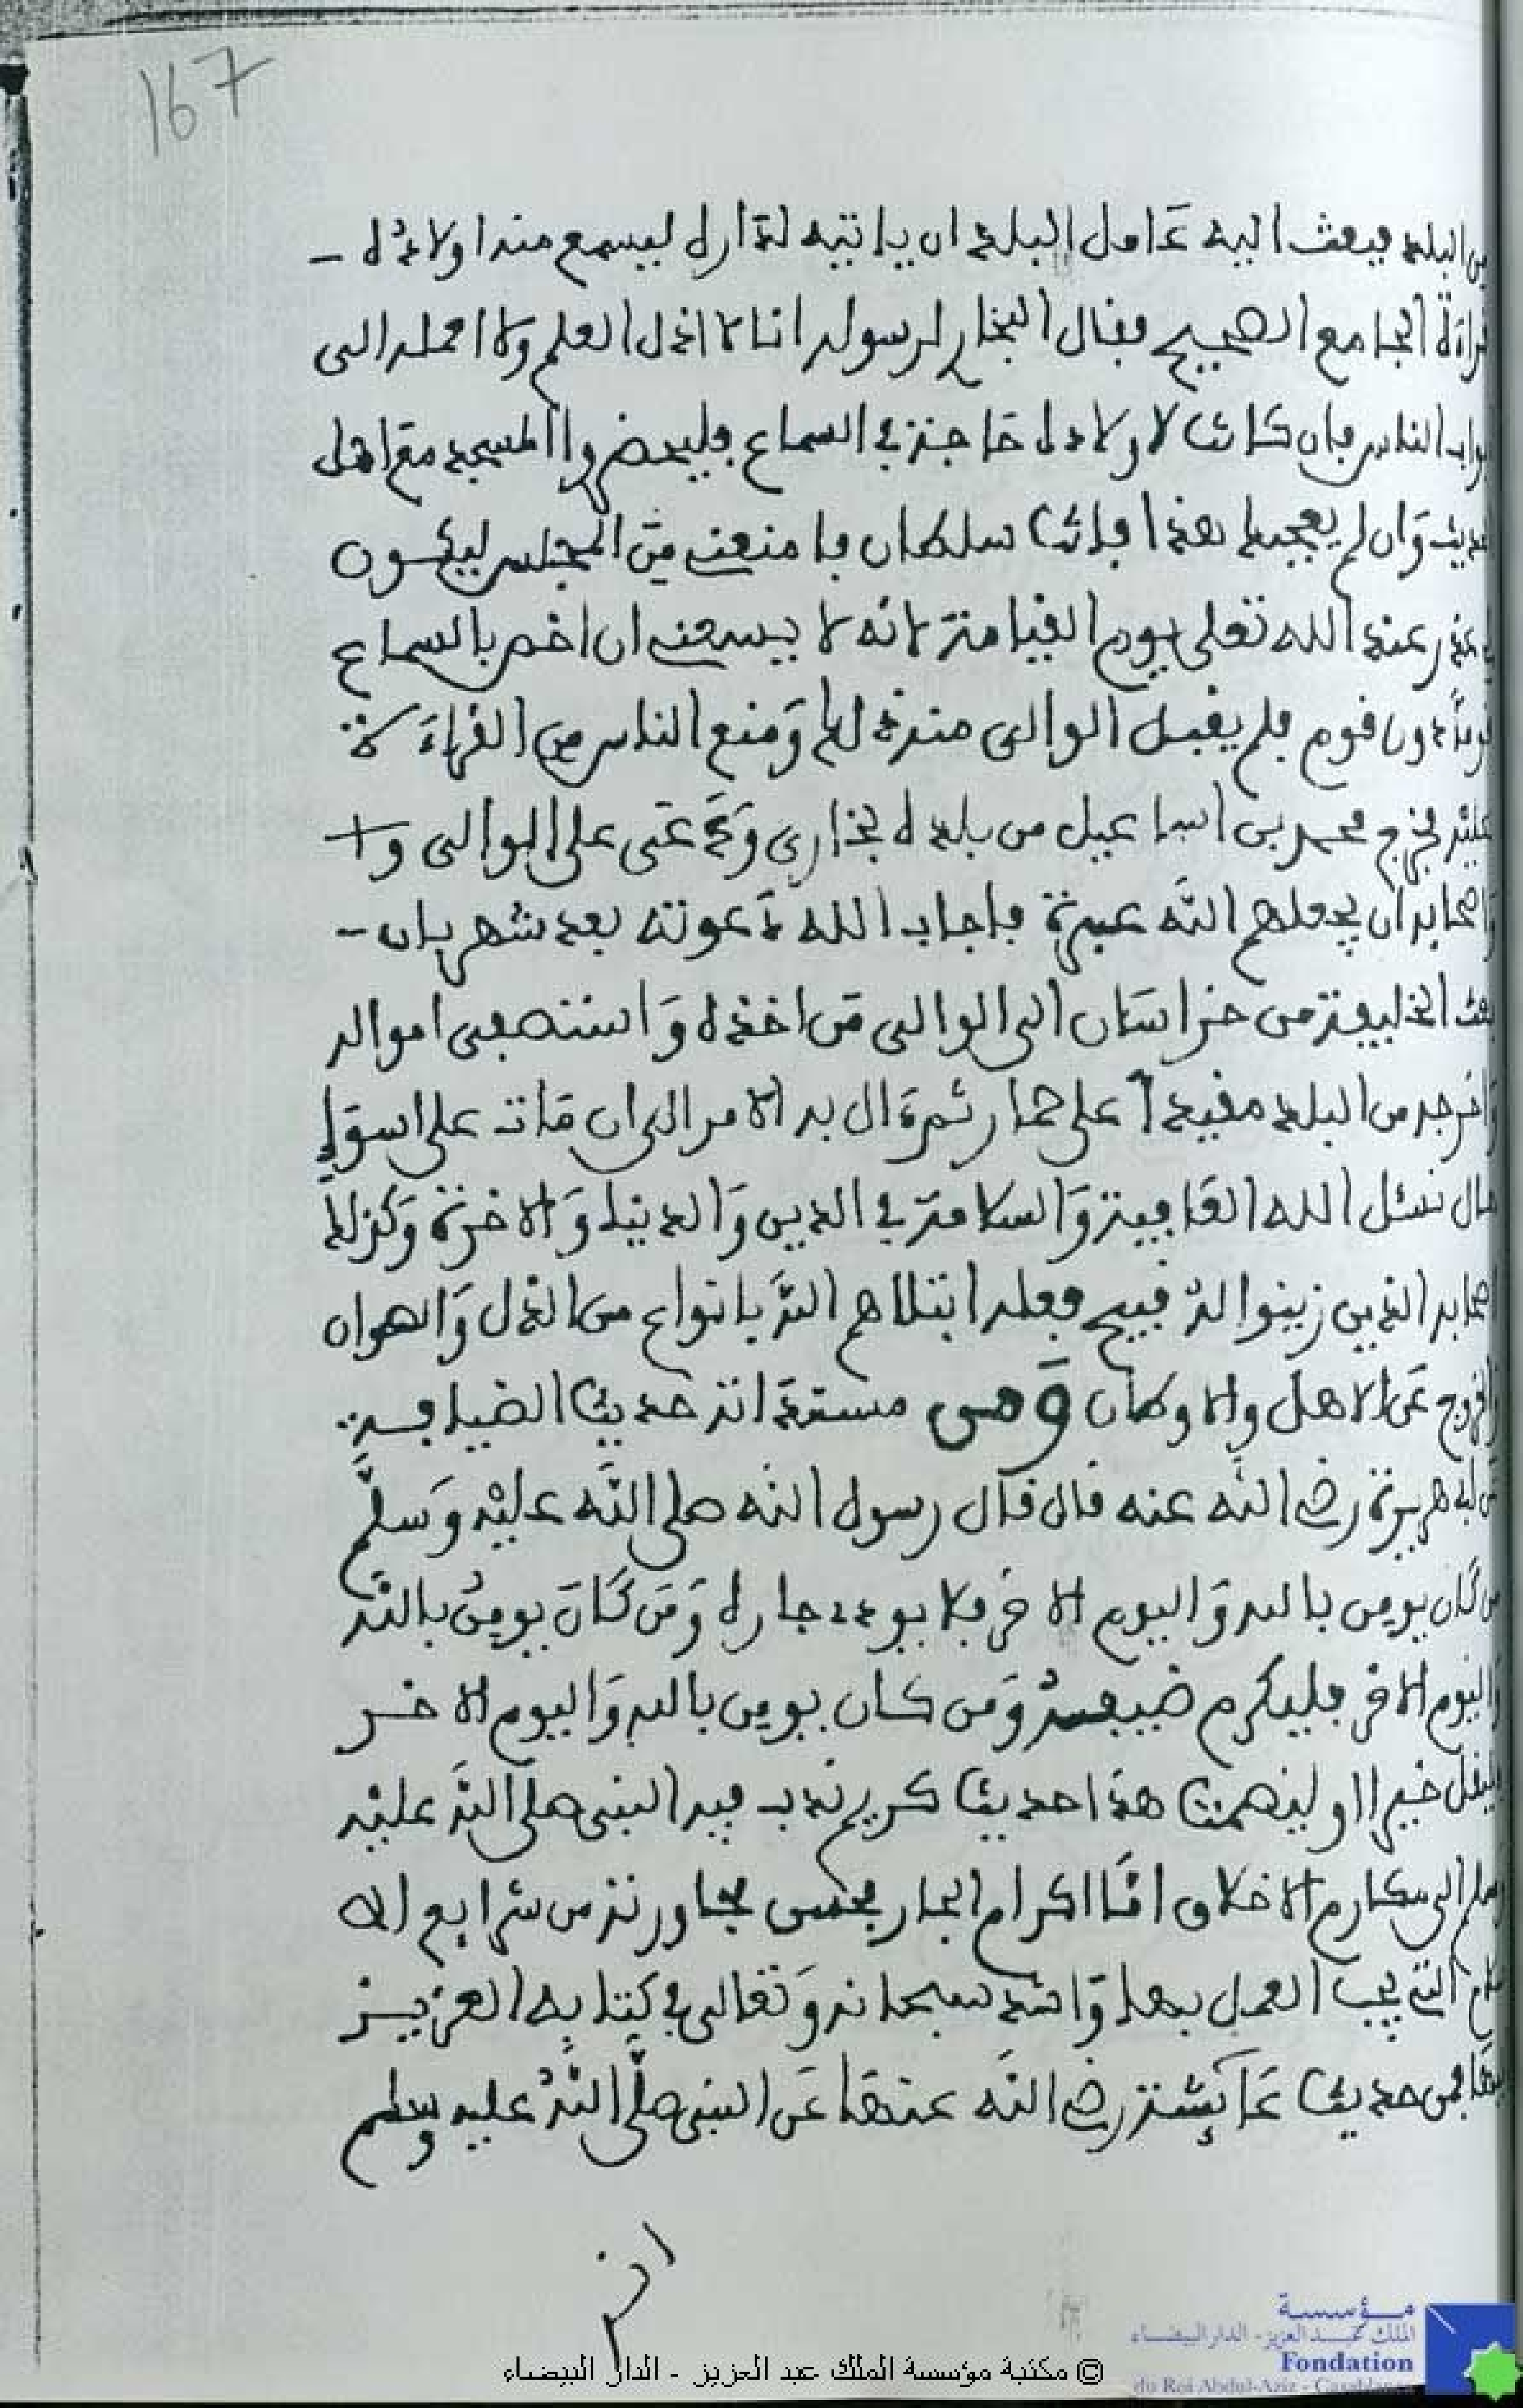 167
من البلد فبعث اليه عَامل البلد ان ياتيه لدَاره ليسمع منه اولاده
قراءة الجامع الصحيح فقال البخاري لرسوله انا لا اذل العلم ولا احمله الى
ابواب الناس فان كانت لاولاده حَاجة في السماع فليحضروا المسجد مع اهل
الحديث وَان لم يعجبك هذا فانت سلطان فامنعني مِن المجلس ليكون
لي عذر عند الله تعلى يوم القيامة لانه لا يسعني ان اخص بالسماع
قوماً دون قوم فلم يقبل الوالى منه ذلك وَمنع الناس من القراءَة
عليْه فخرج محمد بن اسماعيل من بلده بخارى وَدَعَى على الوالى و
وَاصحابه ان يجعلهم اللَّه عبرة فاجاب الله دَعوته بعد شهر بان
بعث الخليفة من خراسَان الى الوالى مَن اخذه وَاستصفى امواله
وَاخرجه من البلد مقيدا على حمار ثم ءَال به الامر الى ان مَات على اسوَإِ
حال نسئل الله العَافية وَالسلامة في الدين وَالدنيا وَالاخرة وَكذلك
اصحابه الذين زينوا له قبيح فعله ابتلاهم اللَّه بانواع من الذل وَالهوان
والخروج عَن الاهل والاوطان وَمن مستعذَاته حديث الضيافة
عَن ابي هريرة رضي اللَّه عنه قال قال رسول الله صلى اللَّه عليْه وَسلَّم
من كَان يومن بالله وَاليوم الاخر فلا يوذ جاره وَمَن كَانَ يومن باللَّه
وَاليوم الاخر فليكرم ضيفه وَمن كان يومن بالله وَاليوم الاخر
فليقل خيرا او ليصمت هذا حديث كريم ندب فيه النبى صلى اللَّه عليْه
وسلم الى مكارم الاخلاق امَّا اكرام الجار بحسن مجاورته من شرايع الا
سلام التي يجب العمل بها وَاشد سبحانه وَتعالى في كِتابِه العزيز
حديث عَائشة رضي اللَّه عنهَا عَن النبى صلَّى اللَّهُ عليه وسلم
انه
© مكتبة مؤسسة الملك عبد العزيز - الدار البيضاء
مؤسسة
الملك عبد العزيز - الدار البيضاء
Fondation
du Roi Abdul-Aziz - Casablanca